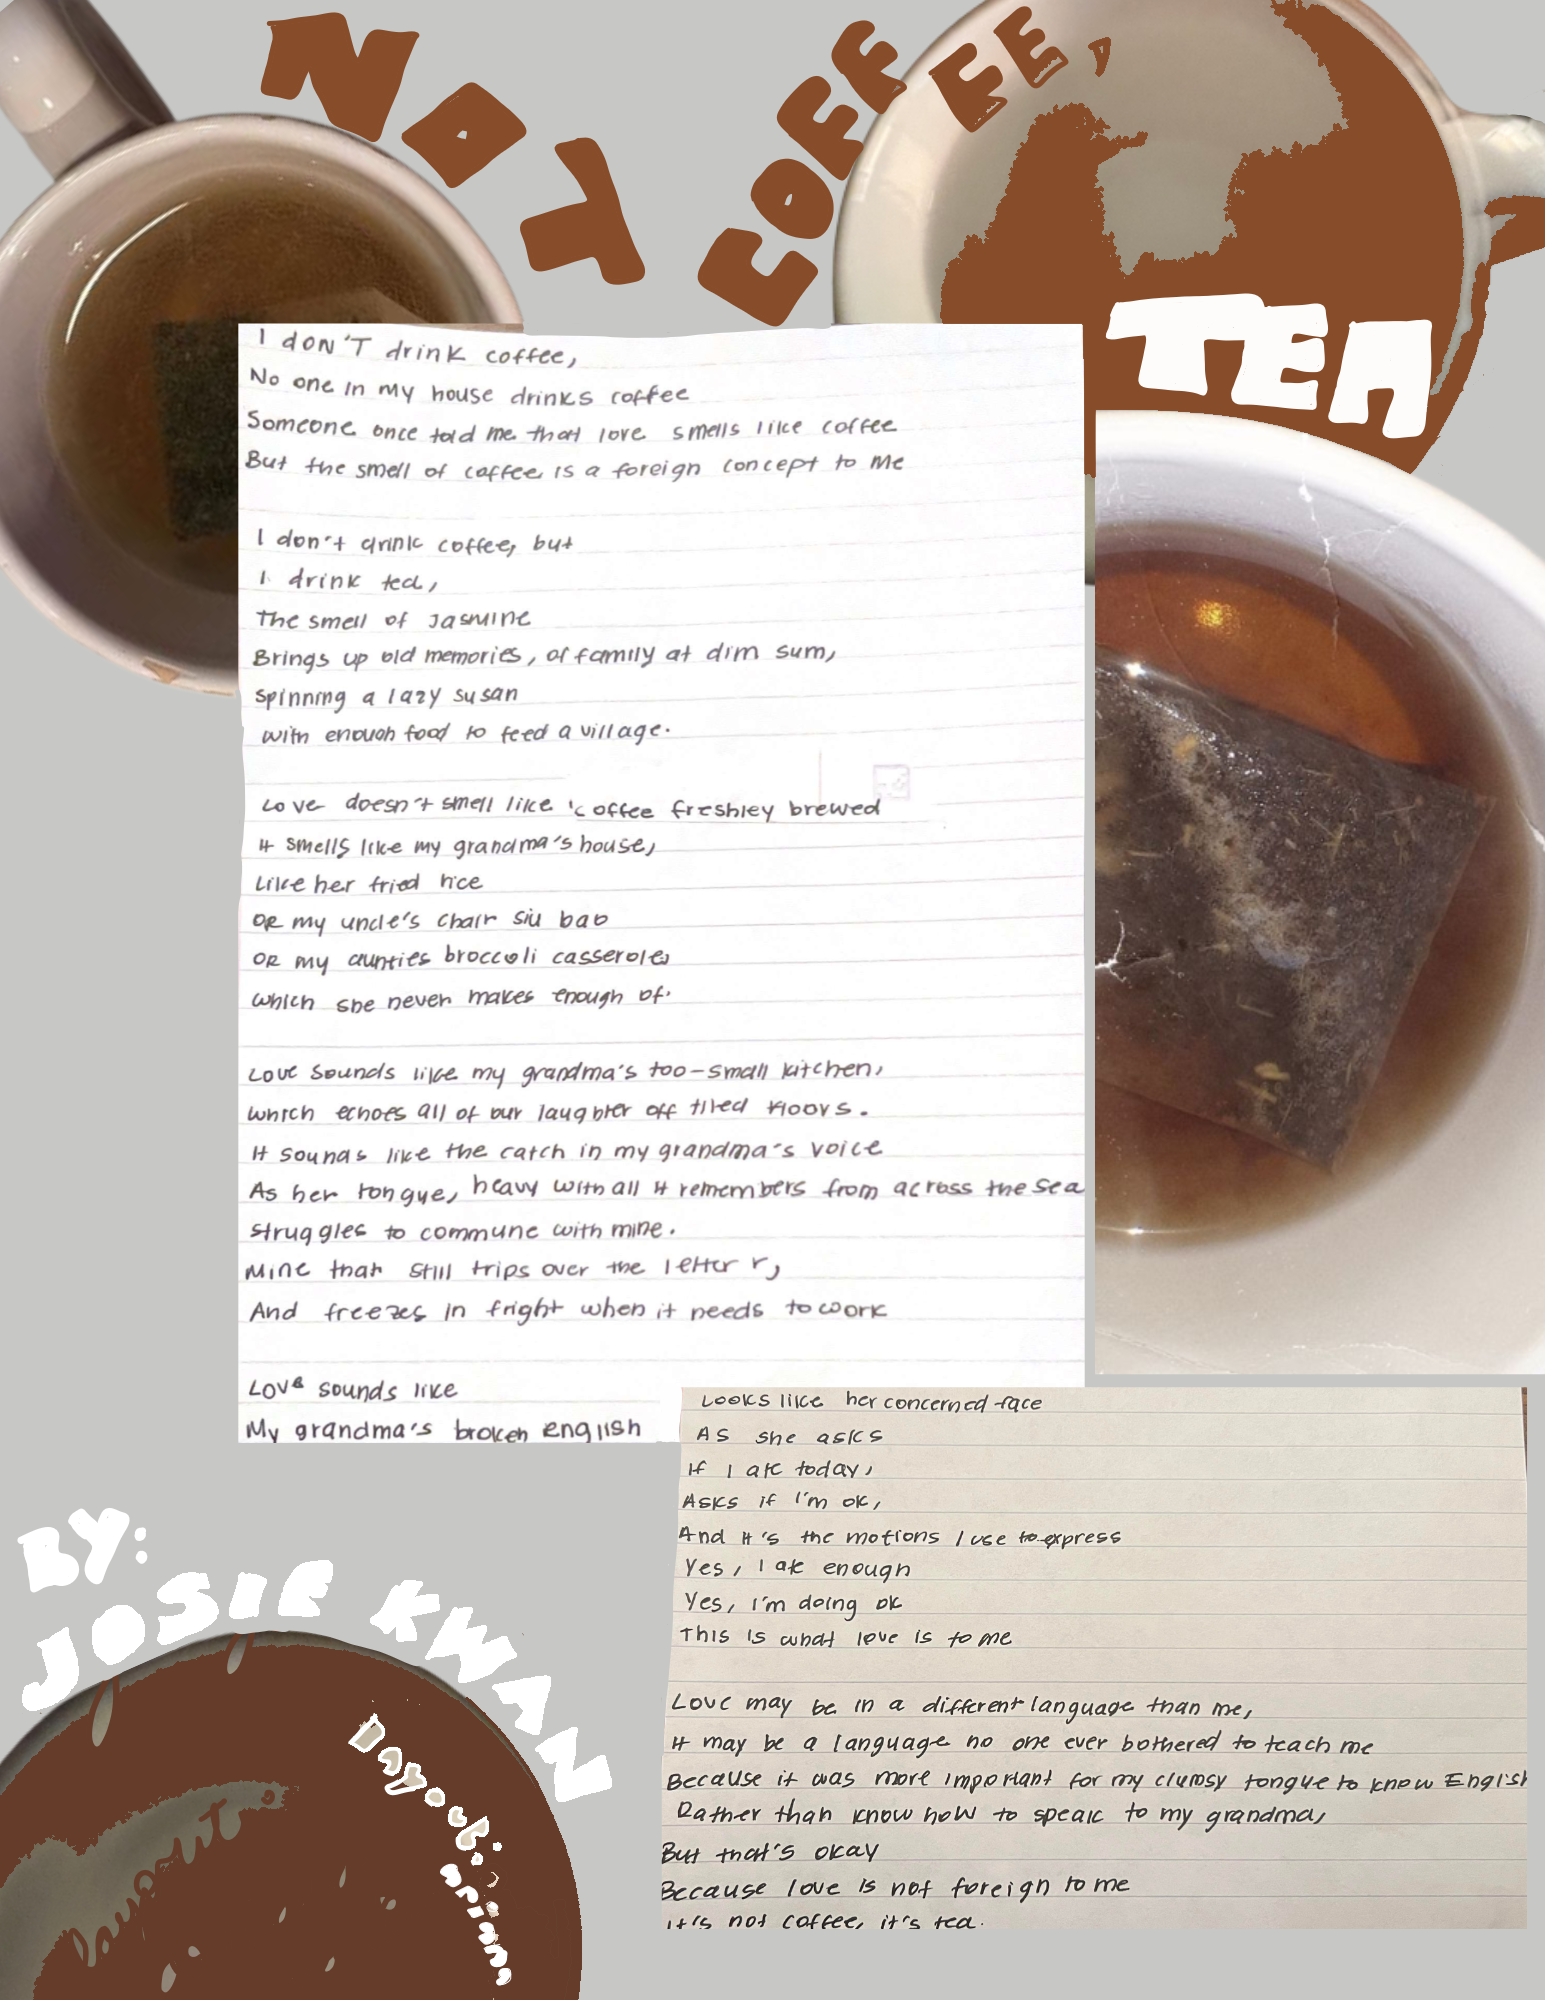 NOT COFFEE,
TEA
I DON'T drink coffee,
No one in my house drinks coffee
Someone once told me that love smells like coffee
But the smell of coffee is a foreign concept to me
I don't drink coffee, but
I drink tea,
The smell of Jasmine
Brings up old memories, of family at dim sum,
spinning a lazy susan
with enough food to feed a village.
Love doesn't smell like coffee freshley brewed
It smells like my grandma's house,
Like her fried rice
OR my uncle's chair siu bao
OR my aunties broccoli casserole,
which she never makes enough of.
Love sounds like my grandma's too-small kitchen,
which echoes all of our laughter off tiled floors.
It sounds like the catch in my grandma's voice
As her tongue, heavy with all it remembers from across the sea
struggles to commune with mine.
Mine that still trips over the letter r,
And freezes in fright when it needs to work
Love sounds like
My grandma's broken english
Looks like her concerned face
As she asks
If I ate today,
Asks if I'm ok,
And it's the motions I use to express
Yes, I ate enough
Yes, I'm doing ok
This is what love is to me
Love may be in a different language than me,
It may be a language no one ever bothered to teach me
Because it was more important for my clumsy tongue to know English
Rather than know how to speak to my grandma,
But that's okay
Because love is not foreign to me
it's not coffee, it's tea.
BY:
JOSIE KWAN
Layout: